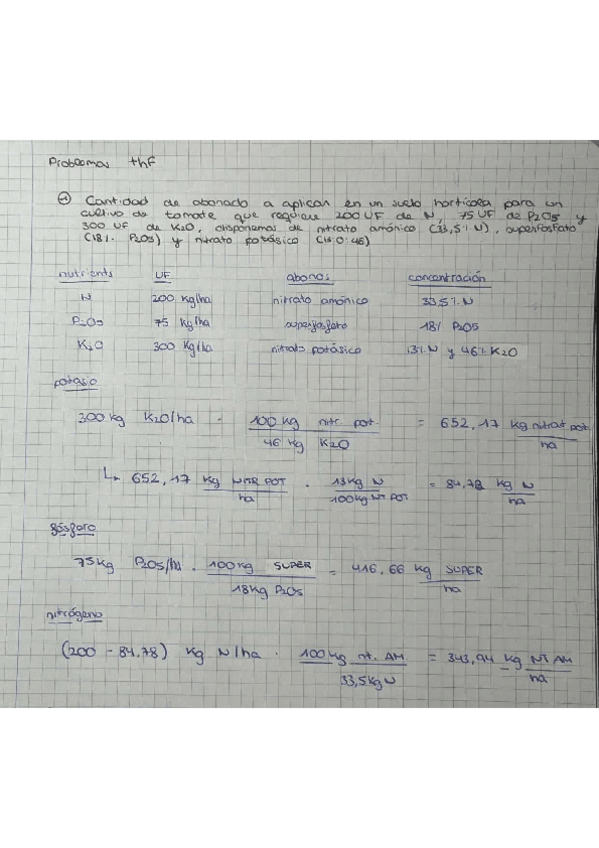 Problemas thf
① Cantidad de abonado a aplicar en un suelo hortícola para un
cultivo de tomate que requiere 200 UF de N, 75 UF de P2O5 y
300 UF de K2O, disponemos de nitrato amónico (33,5% N), superfosfato
(18% P2O5) y nitrato potásico (13:0:46)
nutrients UF abonos concentración
N 200 kg/ha nitrato amónico 33,5% N
P2O5 75 kg/ha superfosfato 18% P2O5
K2O 300 kg/ha nitrato potásico 13% N y 46% K2O
potasio
300 kg K2O/ha · 100 kg nitr. pot. / 46 kg K2O = 652,17 kg nitrat pot / ha
↳ 652,17 kg NITR POT / ha · 13 kg N / 100 kg NT POT = 84,78 kg N / ha
fósforo
75 kg P2O5/ha · 100 kg SUPER / 18 kg P2O5 = 416,66 kg SUPER / ha
nitrógeno
(200 - 84,78) kg N/ha · 100 kg nt. AM / 33,5 kg N = 343,94 kg NT AM / ha